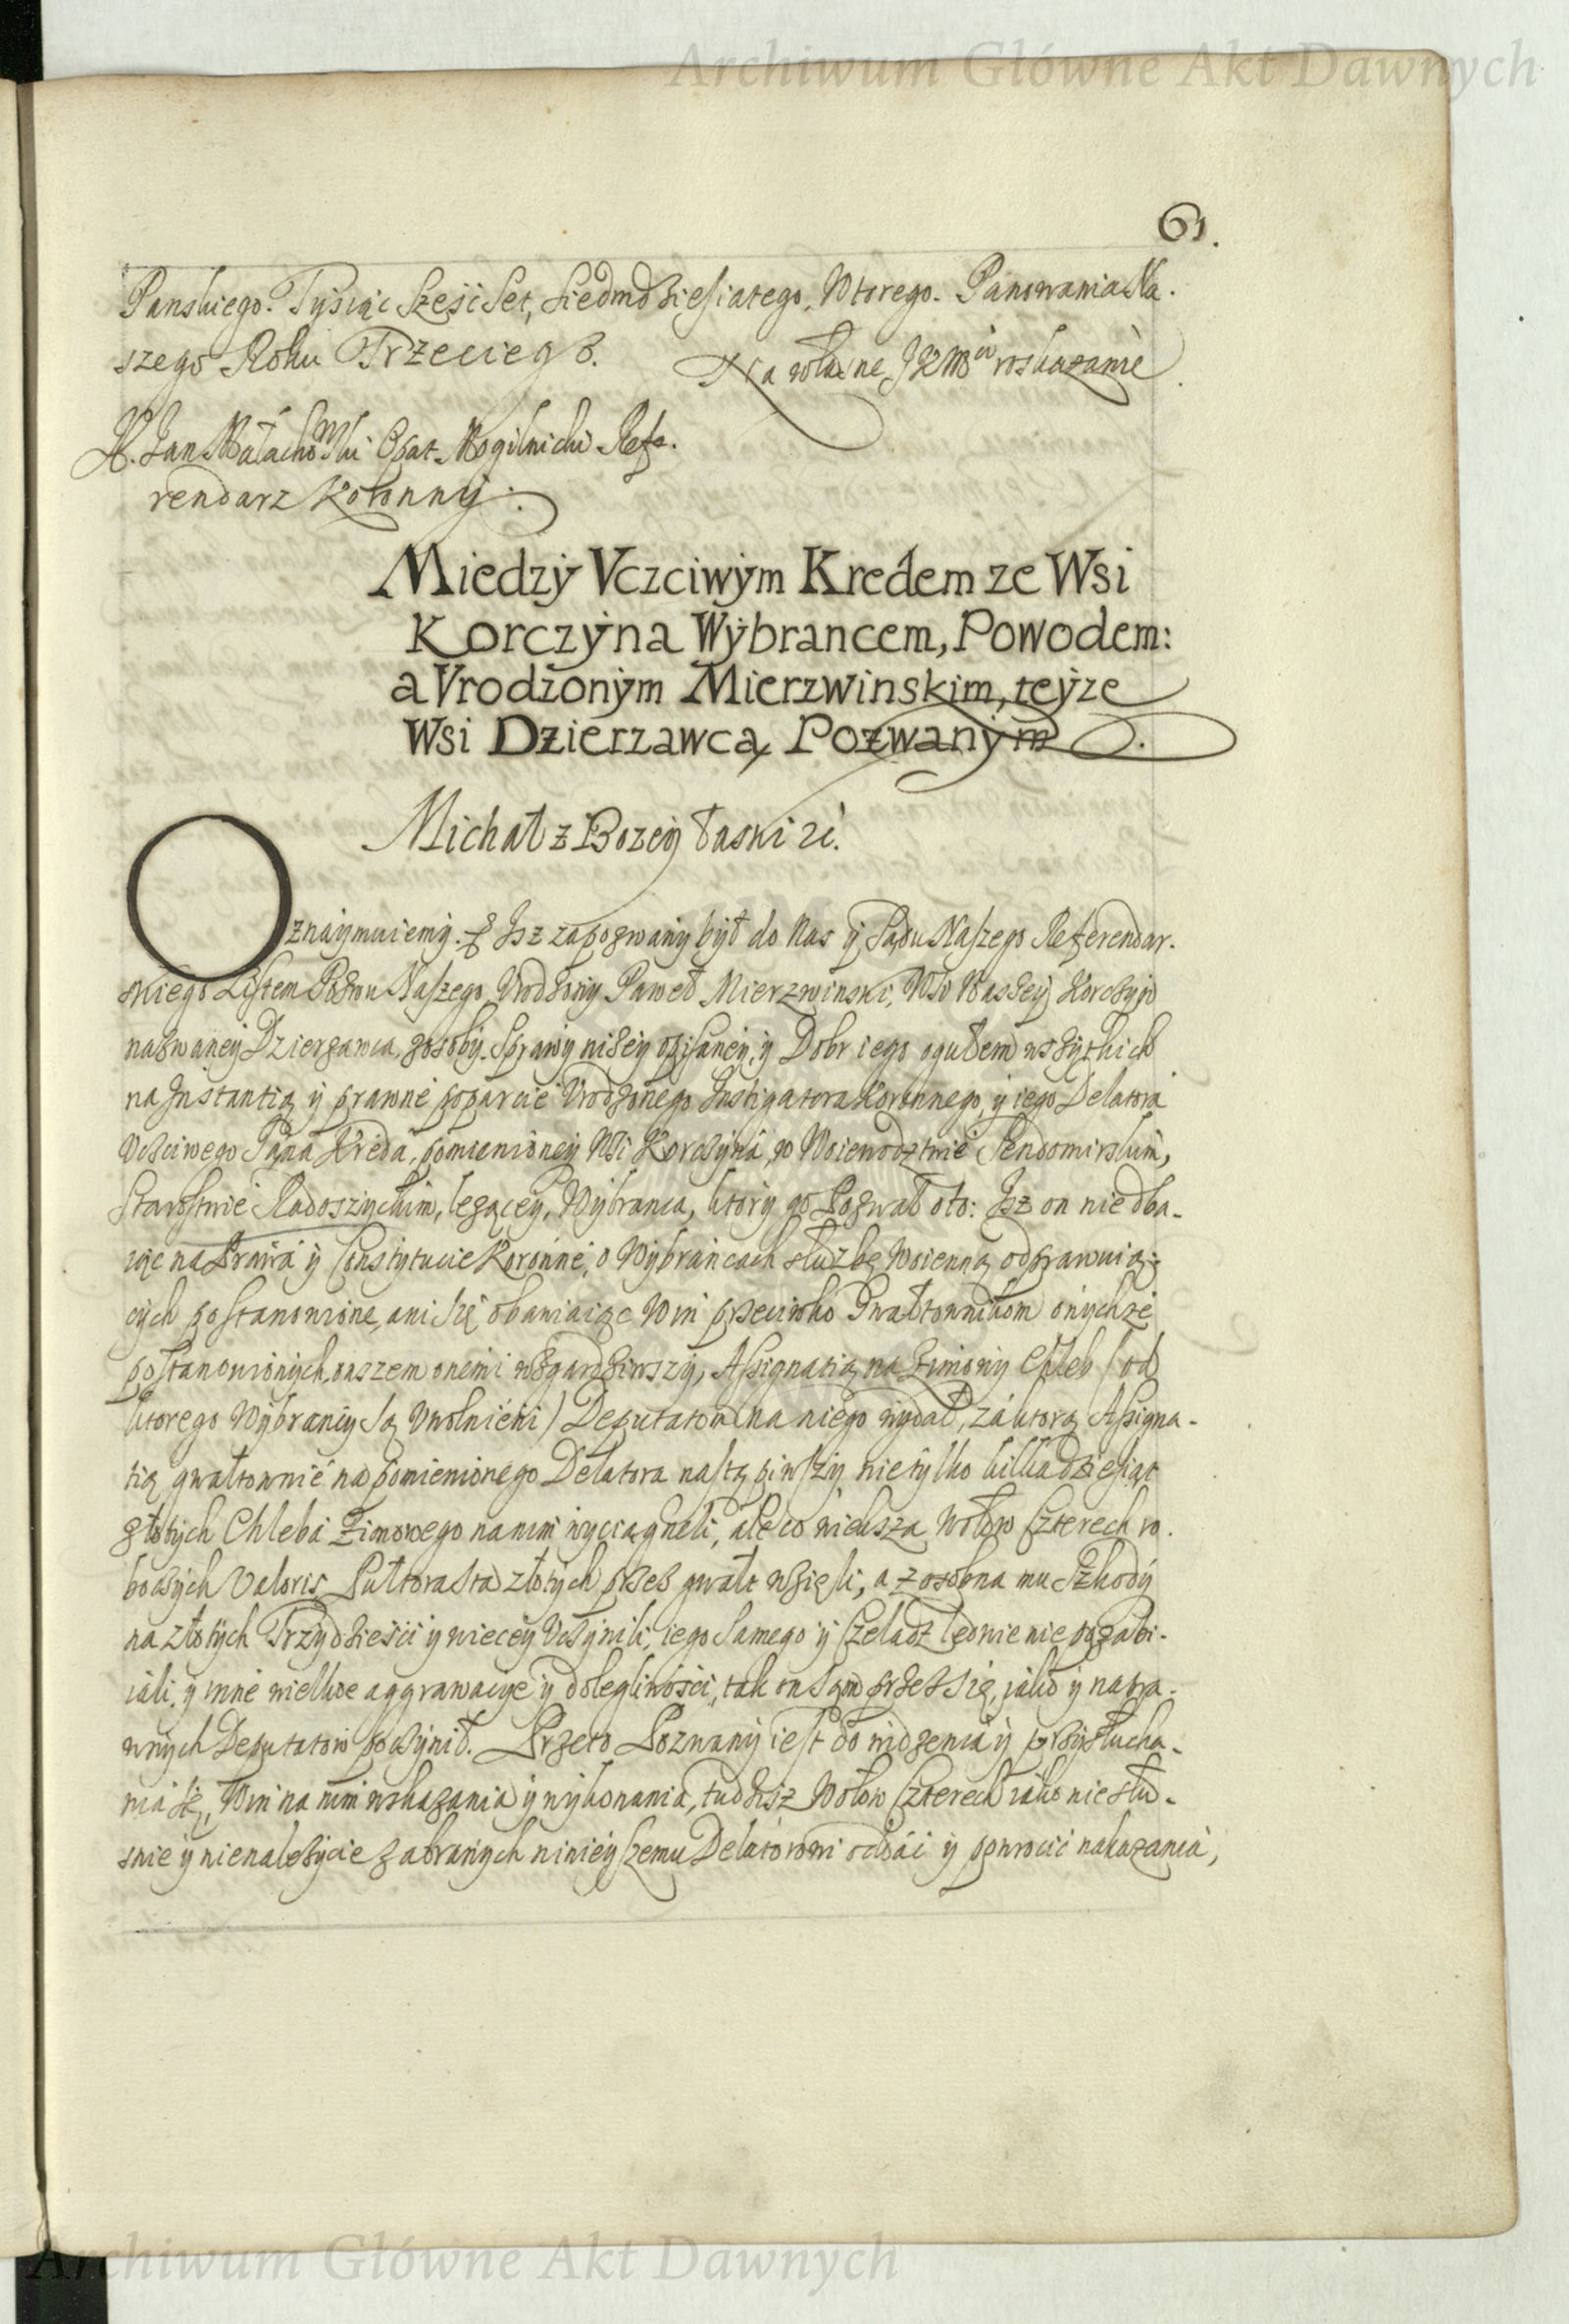 Archiwum Główne Akt Dawnych
61.
Panskiego. Tysiąc Szesc Set, Siedmdziesiatego, Wtorego. Panowania Na-
szego Roku Trzeciego. Na własne JKMci roskazanie
X. Jan Małachowski Opat Mogilnicki Refe-
rendarz Koronny.
Miedzy Vczciwym Kredem ze Wsi
Korczyna Wybrancem, Powodem:
a Vrodzonym Mierzwinskim, teyze
Wsi Dzierzawcą, Pozwanym.
Michał z Bozey łaski
Oznaymuiemy. Isz zapozwany był do Nas y Sądu Naszego Referendar-
skiego Listem Pozwu Naszego, Vrodzony Paweł Mierzwinski, Wsi Naszey Korczyn
nazwaney Dzierzawca, zosoby Sprawy nizey opisaney, y Dobr iego ogułem wszytkich
na Instantią y prawne poparcie Vrodzonego Instigatora Koronnego, y iego Delatora
Vczciwego Jana Kreda, pomienioney Wsi Korczyna, w Woiewodztwie Sendomirskim,
Starostwie Radoszyckim, lezącey, Wybranca, ktory go Pozwał oto: Isz on nie dba-
iąc na Prawa y Constytucie Koronne, o Wybrancach słuzbę Woienną odprawuią-
cych postanowione, ani się obawiaiąc Win przeciwko Gwałtownikom onychze
postanowionych, owszem onemi wzgardziwszy, Assignatią na Zimowy Chleb (od
ktorego Wybrancy są Vwolnieni) Deputatom na niego wydał, za ktorą Assigna-
tią gwałtownie na pomienionego Delatora nastąpiwszy, nie tylko kilkadziesiąt
złotych Chleba Zimowego na nim wyciągneli, ale co wieksza Wołow czterech ro-
boczych Valoris Pułtorasta złotych przez gwałt wzieli, a z osobna mu Szkody
na złotych Trzydziesci y wiecey Vczynili, iego Samego y Czeladz ledwie nie pozabi-
iali, y inne wielkie aggrawacye y dolegliwosci, tak on sam przez się, iako y napra-
wnych Deputatow poczynił. Przeto Pozwany iest do widzenia y przysłucha-
nia się, Win na nim wskazania y wykonania, tudzisz Wołow Czterech iako niesłu-
snie y nienalezycie zabranych ninieyszemu Delatorowi oddać y powrocić nakazania,
Archiwum Główne Akt Dawnych